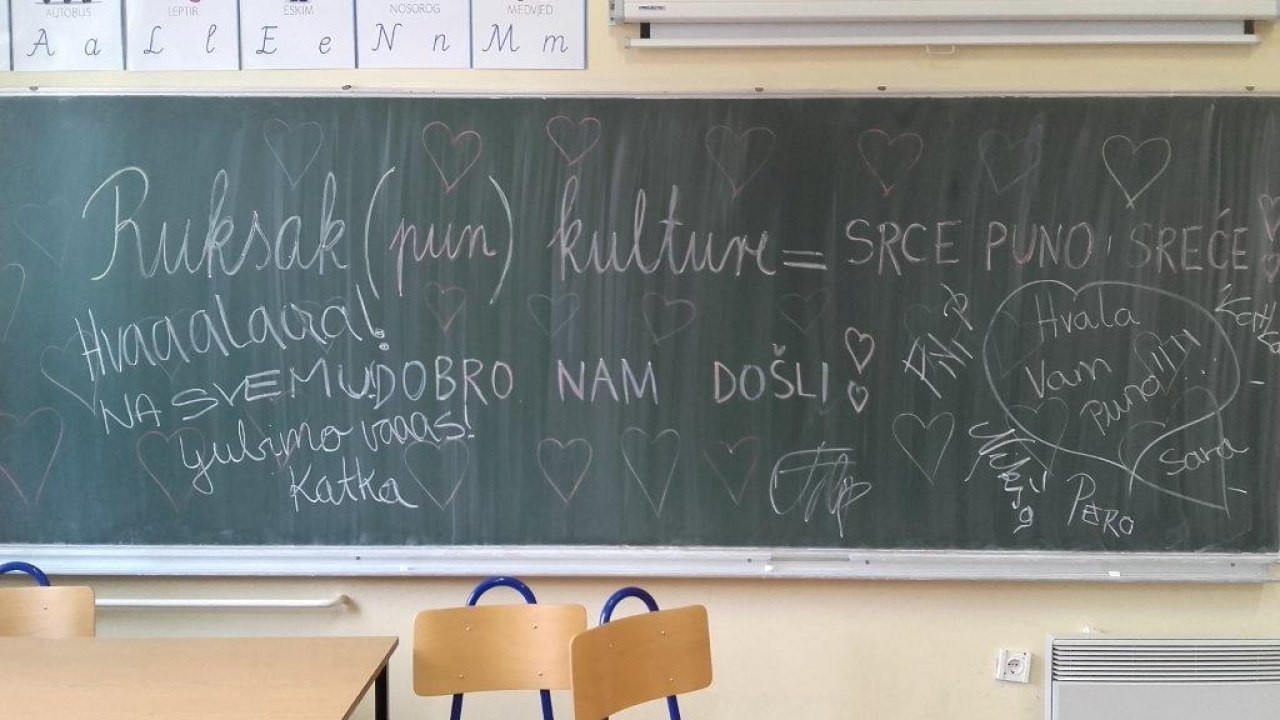 AUTOBUS LEPTIR ESKIM NOSOROG MEDVJED
A a L l E e N n M m
Ruksak (pun) kulture = SRCE PUNO SREĆE
Hvaaalaaaa!
NA SVEMU!
DOBRO NAM DOŠLI!
Ljubimo vaaas!
Katka
Hvala
Vam
puno!!!
ANI
Sara
PERO